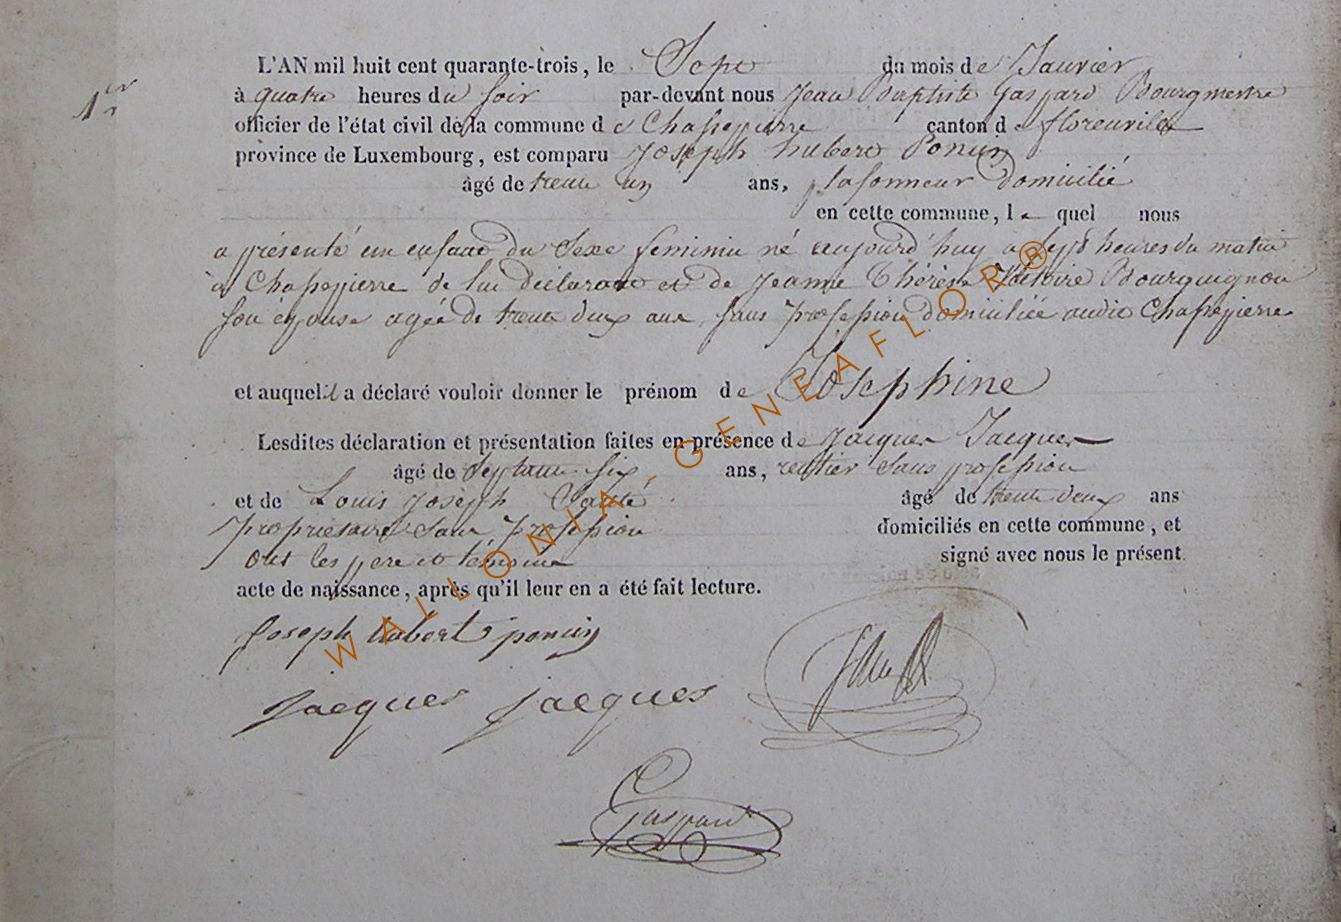 1er
L'AN mil huit cent quarante-trois, le Sept du mois de Janvier
à quatre heures du soir par-devant nous Jean Baptiste Gaspard Bourgmestre
officier de l'état civil de la commune de Chassepierre canton de florenville
province de Luxembourg, est comparu Joseph hubert Poncin
âgé de trente un ans, plafonneur domicilié
en cette commune, le quel nous
a présenté un enfant du Sexe feminin né aujourd'huy à heures du matin
à Chassepierre de lui déclarant et de Jeanne Thérèse Victoire Bourguignon
son épouse agée de trente deux ans, sans profession domiciliée audit Chassepierre
et auquel il a déclaré vouloir donner le prénom de Josephine
Lesdites déclaration et présentation faites en présence de Jacques Jacques
âgé de Septante six ans, rentier sans profession
et de Louis Joseph âgé de trente deux ans
propriétaire sans profession domiciliés en cette commune, et
ont les pere et témoins signé avec nous le présent
acte de naissance, après qu'il leur en a été fait lecture.
Joseph hubert poncin
jacques jacques
Gaspard
WALLONIA-GENEAFLOR®